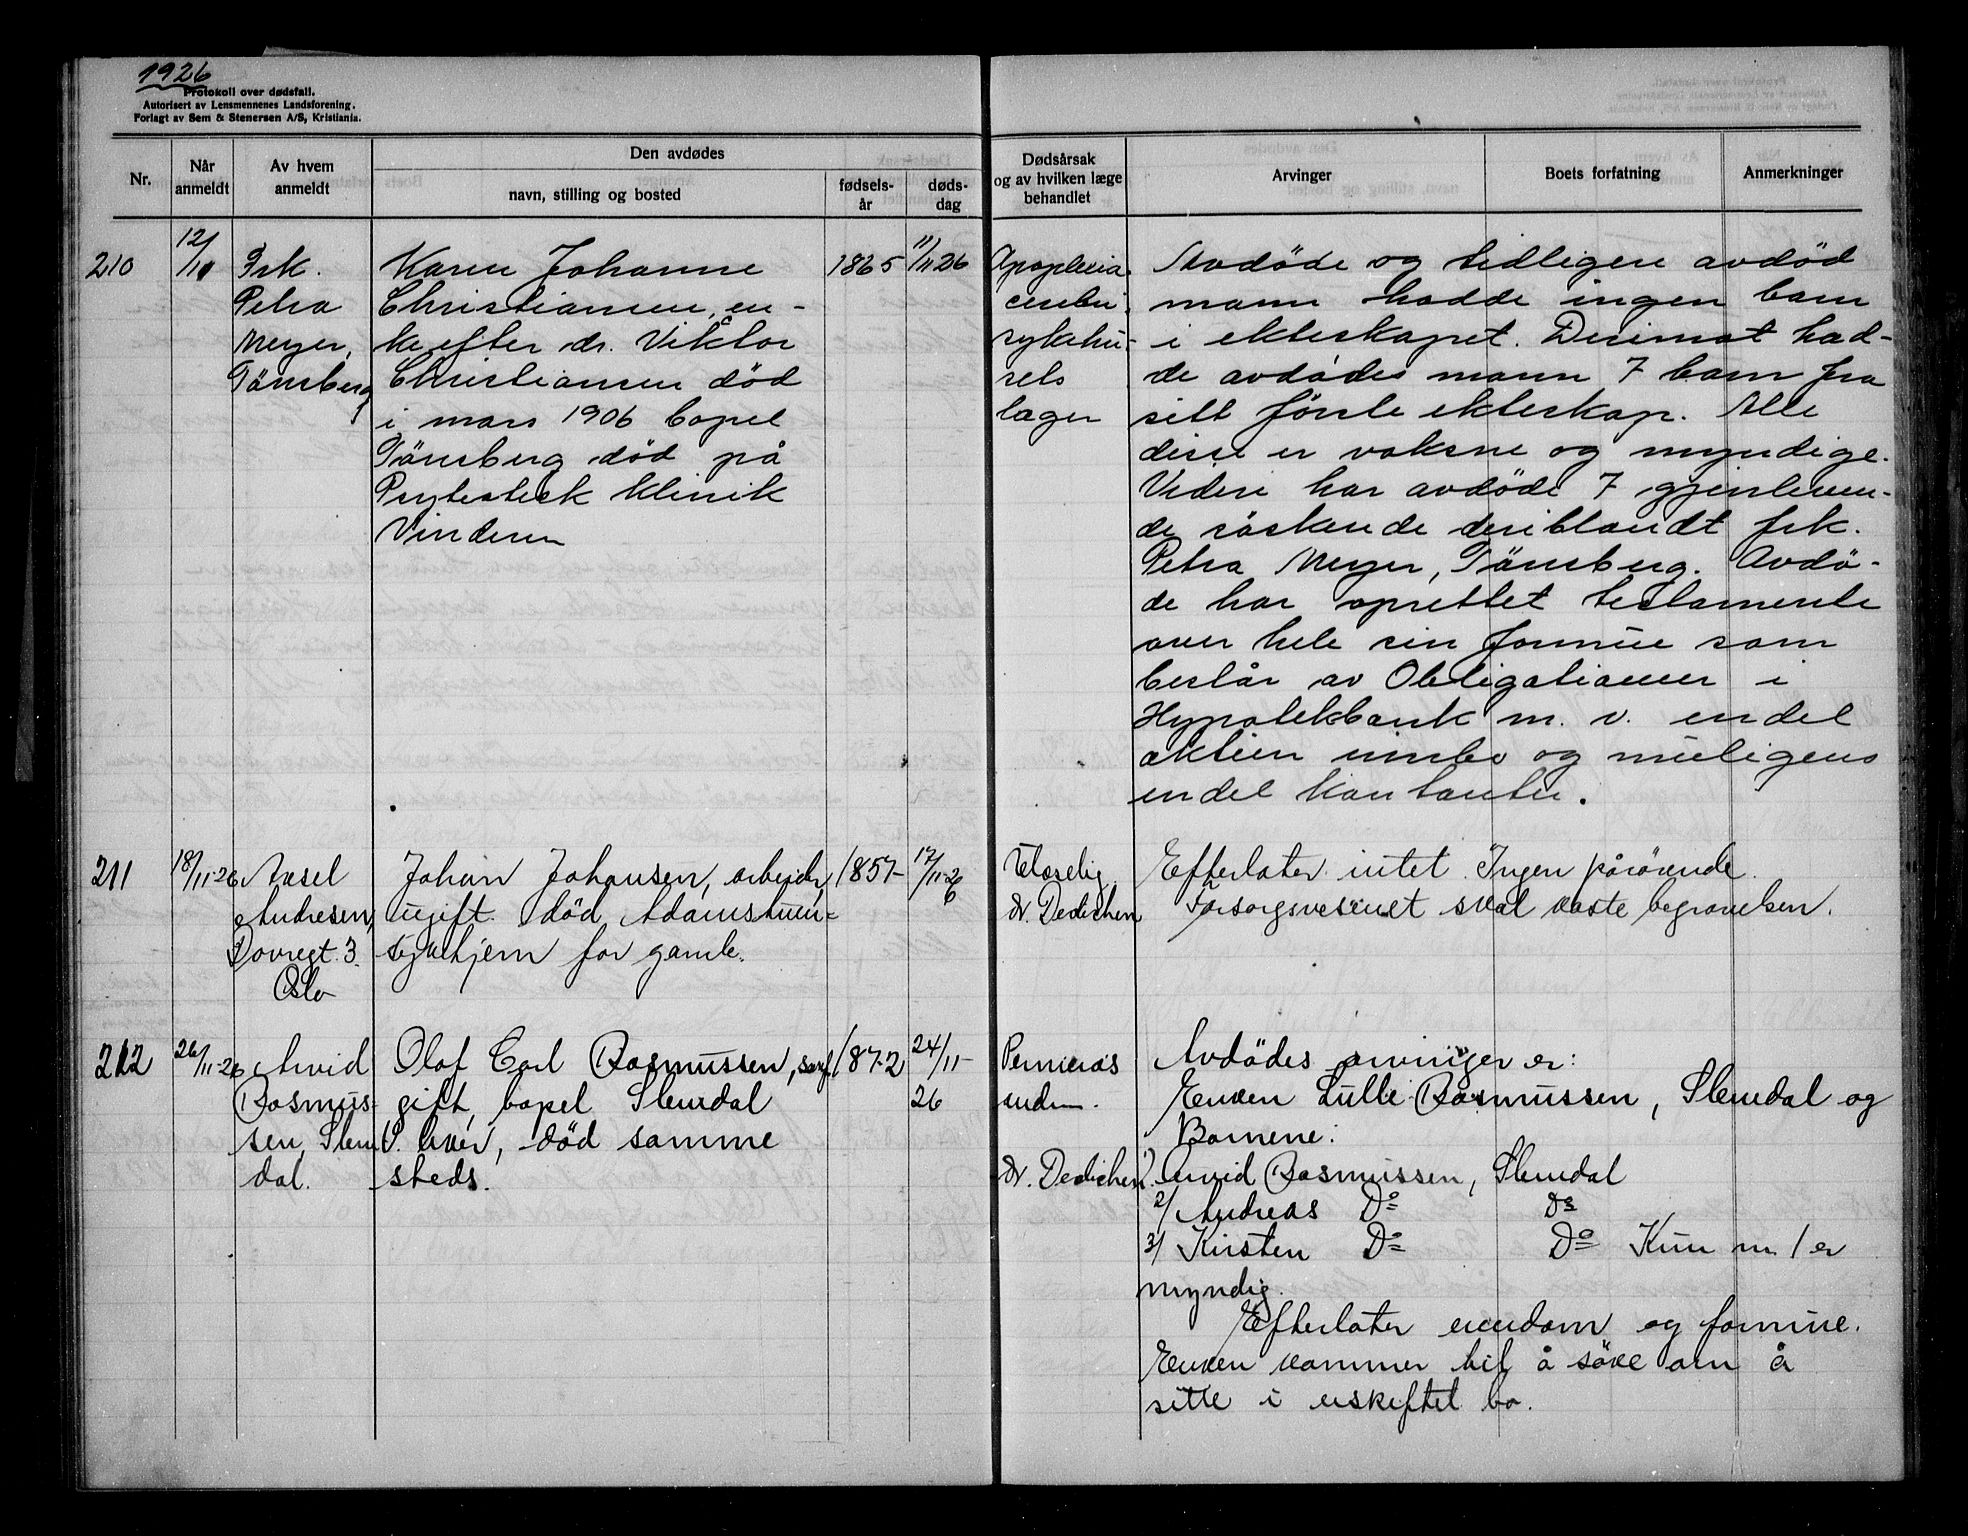 1926
Protokoll over dødsfall.
Autorisert av Lensmennenes Landsforening.
Forlagt av Sem & Stenersen A/S, Kristiania.
Nr.
Når anmeldt
Av hvem anmeldt
Den avdødes
navn, stilling og bosted
fødselsår
dødsdag
Dødsårsak og av hvilken læge behandlet
Arvinger
Boets forfatning
Anmerkninger
210
12/11
Frk.
Petra
Meyer,
Tönsberg
Karen Johanne
Christiansen, en-
ke efter dr. Viktor
Christiansen død
i mars 1906 bopel
Tönsberg død på
klinik
Vinderen
1865
11/11 26
Apoplexia
cerebri,
sykehu-
sets
læger
Avdøde og tidligere avdød
mann hadde ingen barn
i ekteskapet. Derimot had-
de avdødes mann 7 barn fra
sitt første ekteskap. Alle
disse er voksne og myndige.
Videre har avdøde 7 gjenleven-
de søskende deriblandt frk.
Petra Meyer, Tönsberg. Avdø-
de har oprettet testamente
over hele sin formue som
består av Obligationer i
Hypotekbank m. v. endel
aktier innbo og muligens
endel kontanter.
211
18/11-26
Axel
Andresen,
Dovregt. 3
Oslo
Johan Johansen, arbeider,
ugift. død Adamstuen
sykehjem for gamle.
1857-
17/11-26
dr. Dedichen
Efterlater intet. Ingen pårörende.
Forsorgsvesenet skal koste begravelsen.
212
26/11-26
Arvid
Rasmus-
sen, Slem
dal.
Olaf Carl Rasmussen,
gift, bopel Slemdal
V. Aker, død samme
steds.
1872
24/11-
26
Pernicøs
anemi.
dr. Dedichen
Avdödes arvinger er:
Enken Lulli Rasmussen, Slemdal og
Barnene:
1). Arvid Rasmussen, Slemdal
2/ Andreas Do Do
3/ Kirsten Do Do Kun nr. 1 er
myndig.
Efterlater eiendom og formue.
Enken kommer til å söke om å
sitte i uskiftet bo.